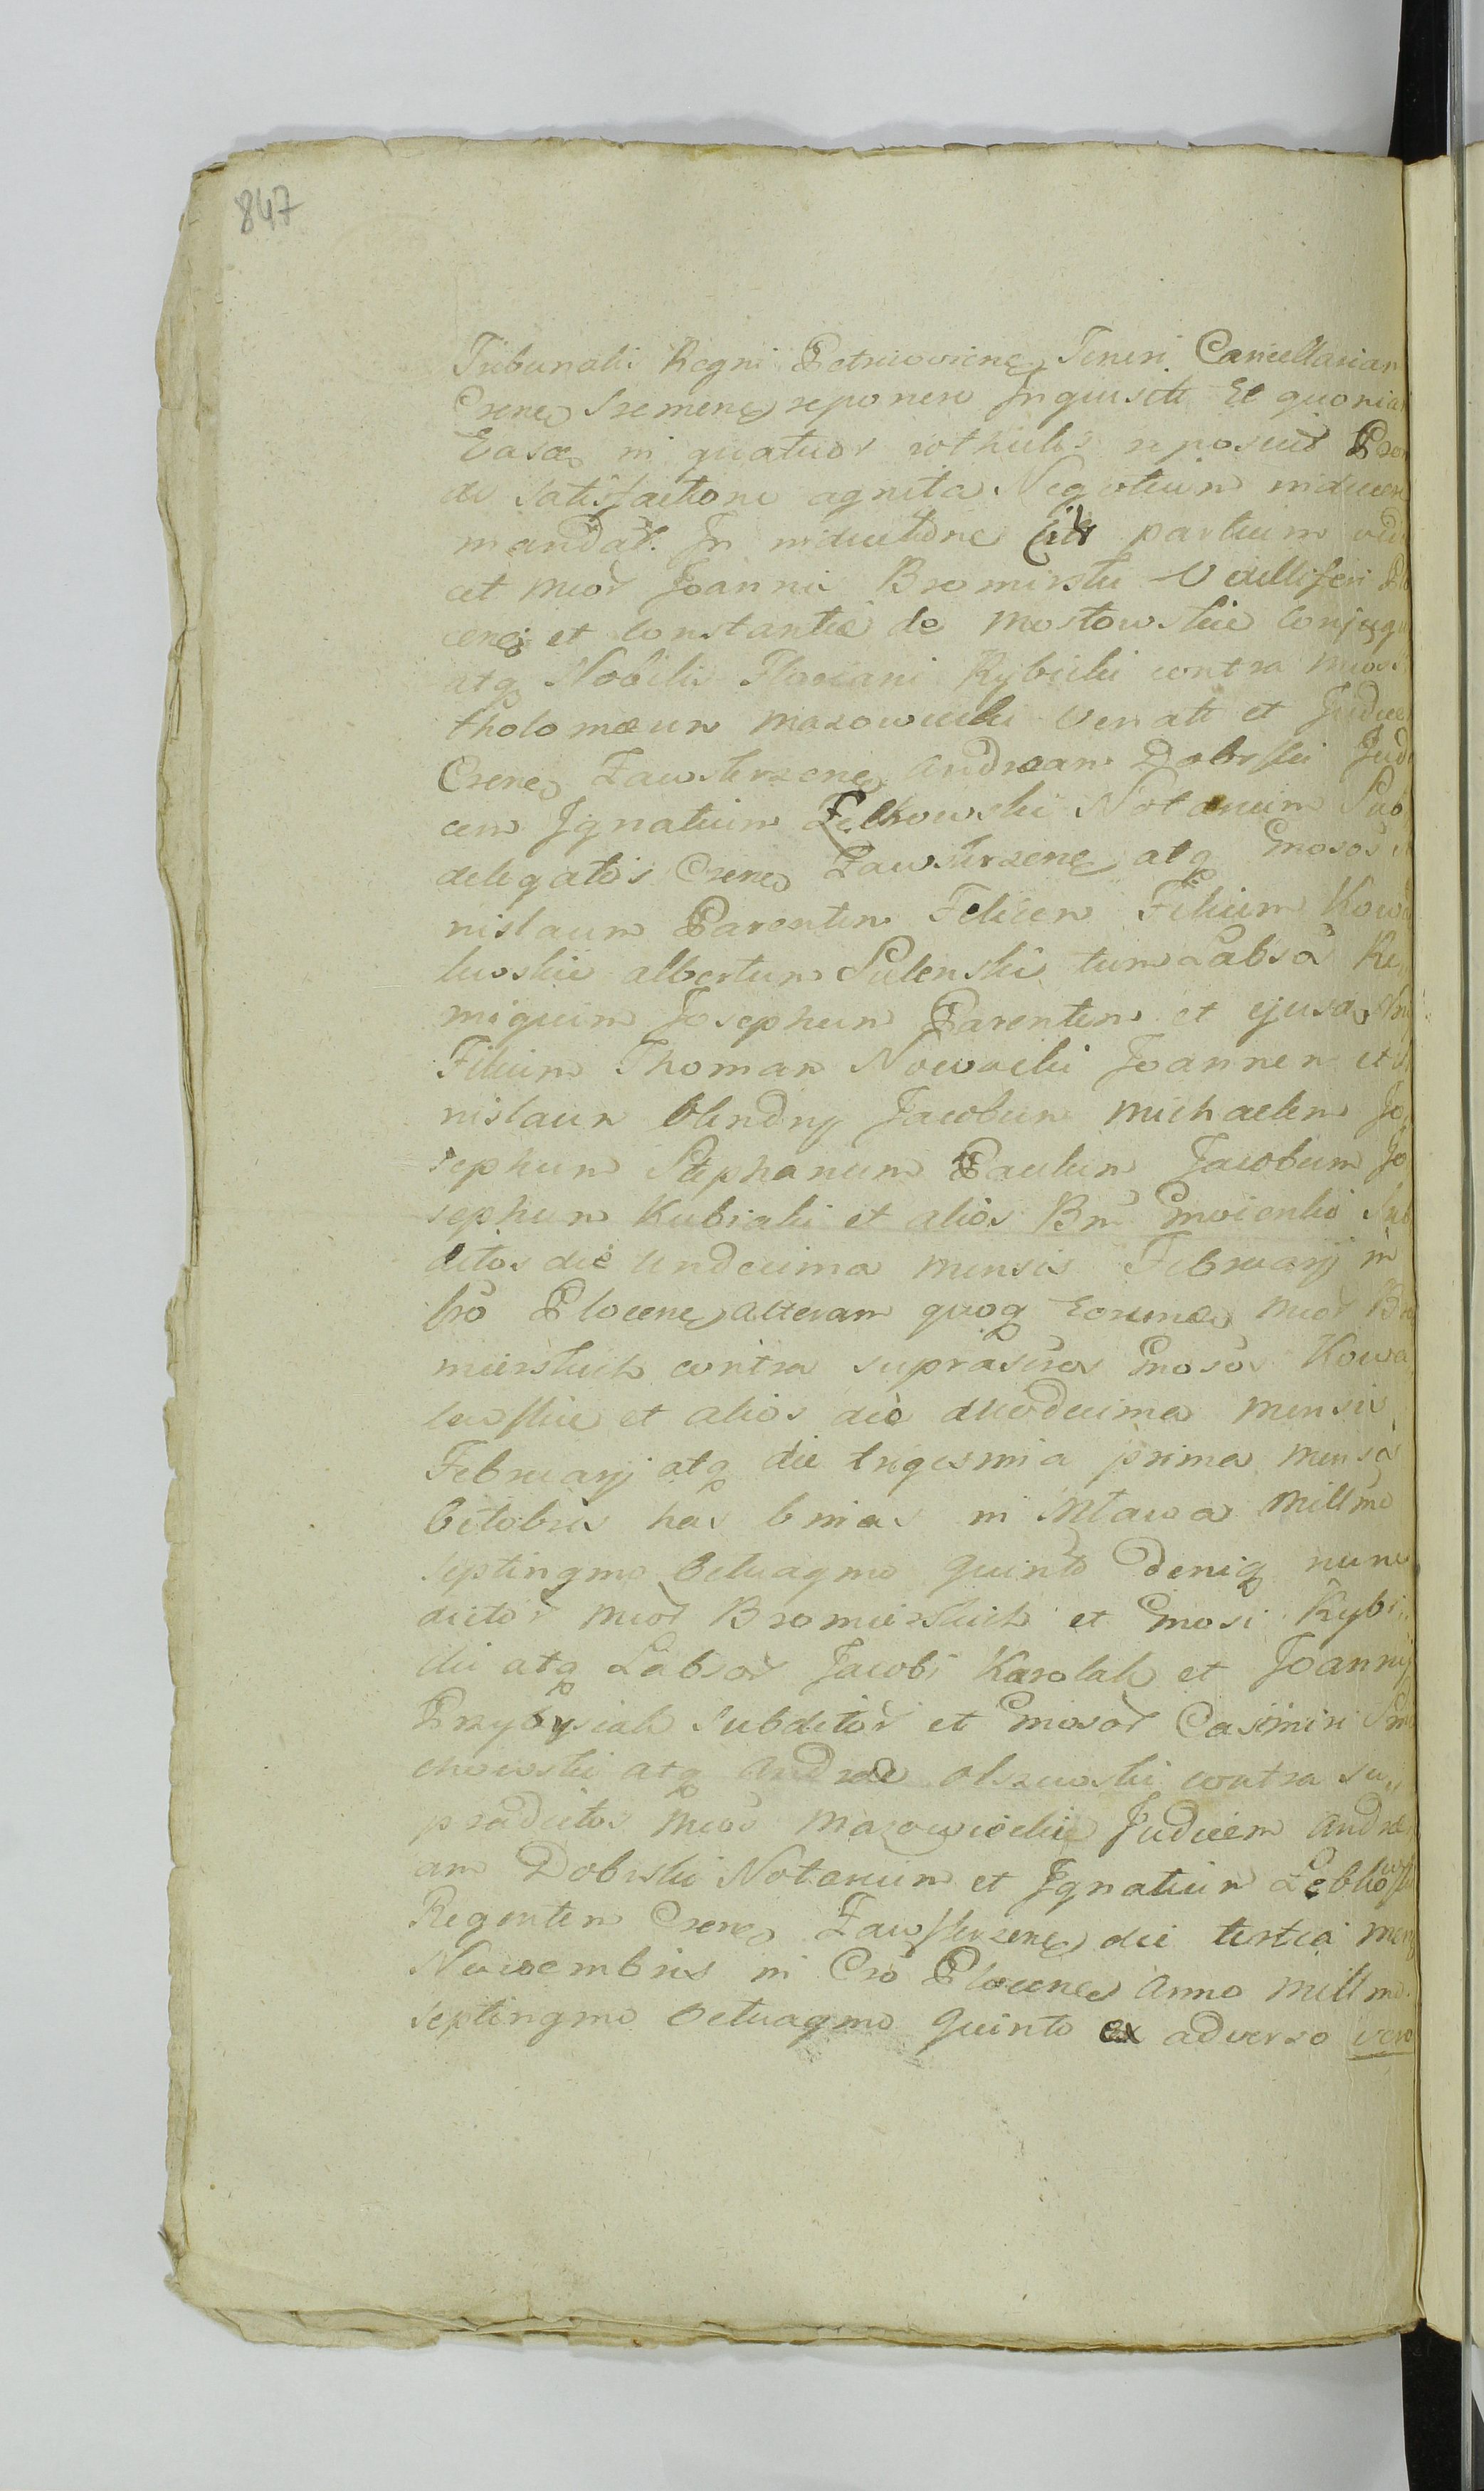 847
Tribunalis Regni Petricovien Teneri Cancellarian
Crene Sremene reponere Inquisit Et quonia
Easd in quatuor rothulis reposuit
de satisfactione agnita Negotium inducere
mandat. In inductione partium
et Mcor Joannis Bromirski Vexilliferi
cen et Constantiæ de Mostowskie Conjugu
atq Nobilis Floriani Rybicki contra Mcos
tholomæum Mazowiecki Venat et Judice
Crene Zawskrzene Andream Dobrski Judi
cem Ignatium Notarium Sub
delegatos Crene Zawskrzene atq Gnosos
nislaum Parentem Felicem Filium Kowa
lewskie Albertum Sulenski tum Labsa Re,,
miguim Josephum Parentem et ejusd
Filium Thomam Nowacki Joannem et
nislaum Olendry Jacobum Michaelem Jo
sephum Stephanum Paulum Jacobum Jo
sephum Kubiaki et alios Bn Gnoienko Sub
ditos die Undecima Mensis Februarij in
Cro Plocen alteram quoq Eorumd Mcor B
mierskich contra suprascros Gnosos Kowa
lewskie et alios die duodecima Mensis
Februarij atq die trigesima prima Mensis
Octobris has binas in Mlawa Millmo
septingmo Octuagmo Quinto Deniq nunc
dictor Mcor Bromierskich et Gnosi Rybi,,
cki atq Labsor Jacobi Karolak et Joannis
Przybysiak Subditor et Gnosor Casimiri
chowski atq Andreæ Olszewski contra su,,
pradictos Mcos Mazowieckie Judicem Andre
am Dobrski Notarium et Ignatium
Regentem Crene Zawskrzene die tertia Mens
Novembris in Cro Plocene Anno Millmo
septingmo Octuagmo Quinto ex adverso vero